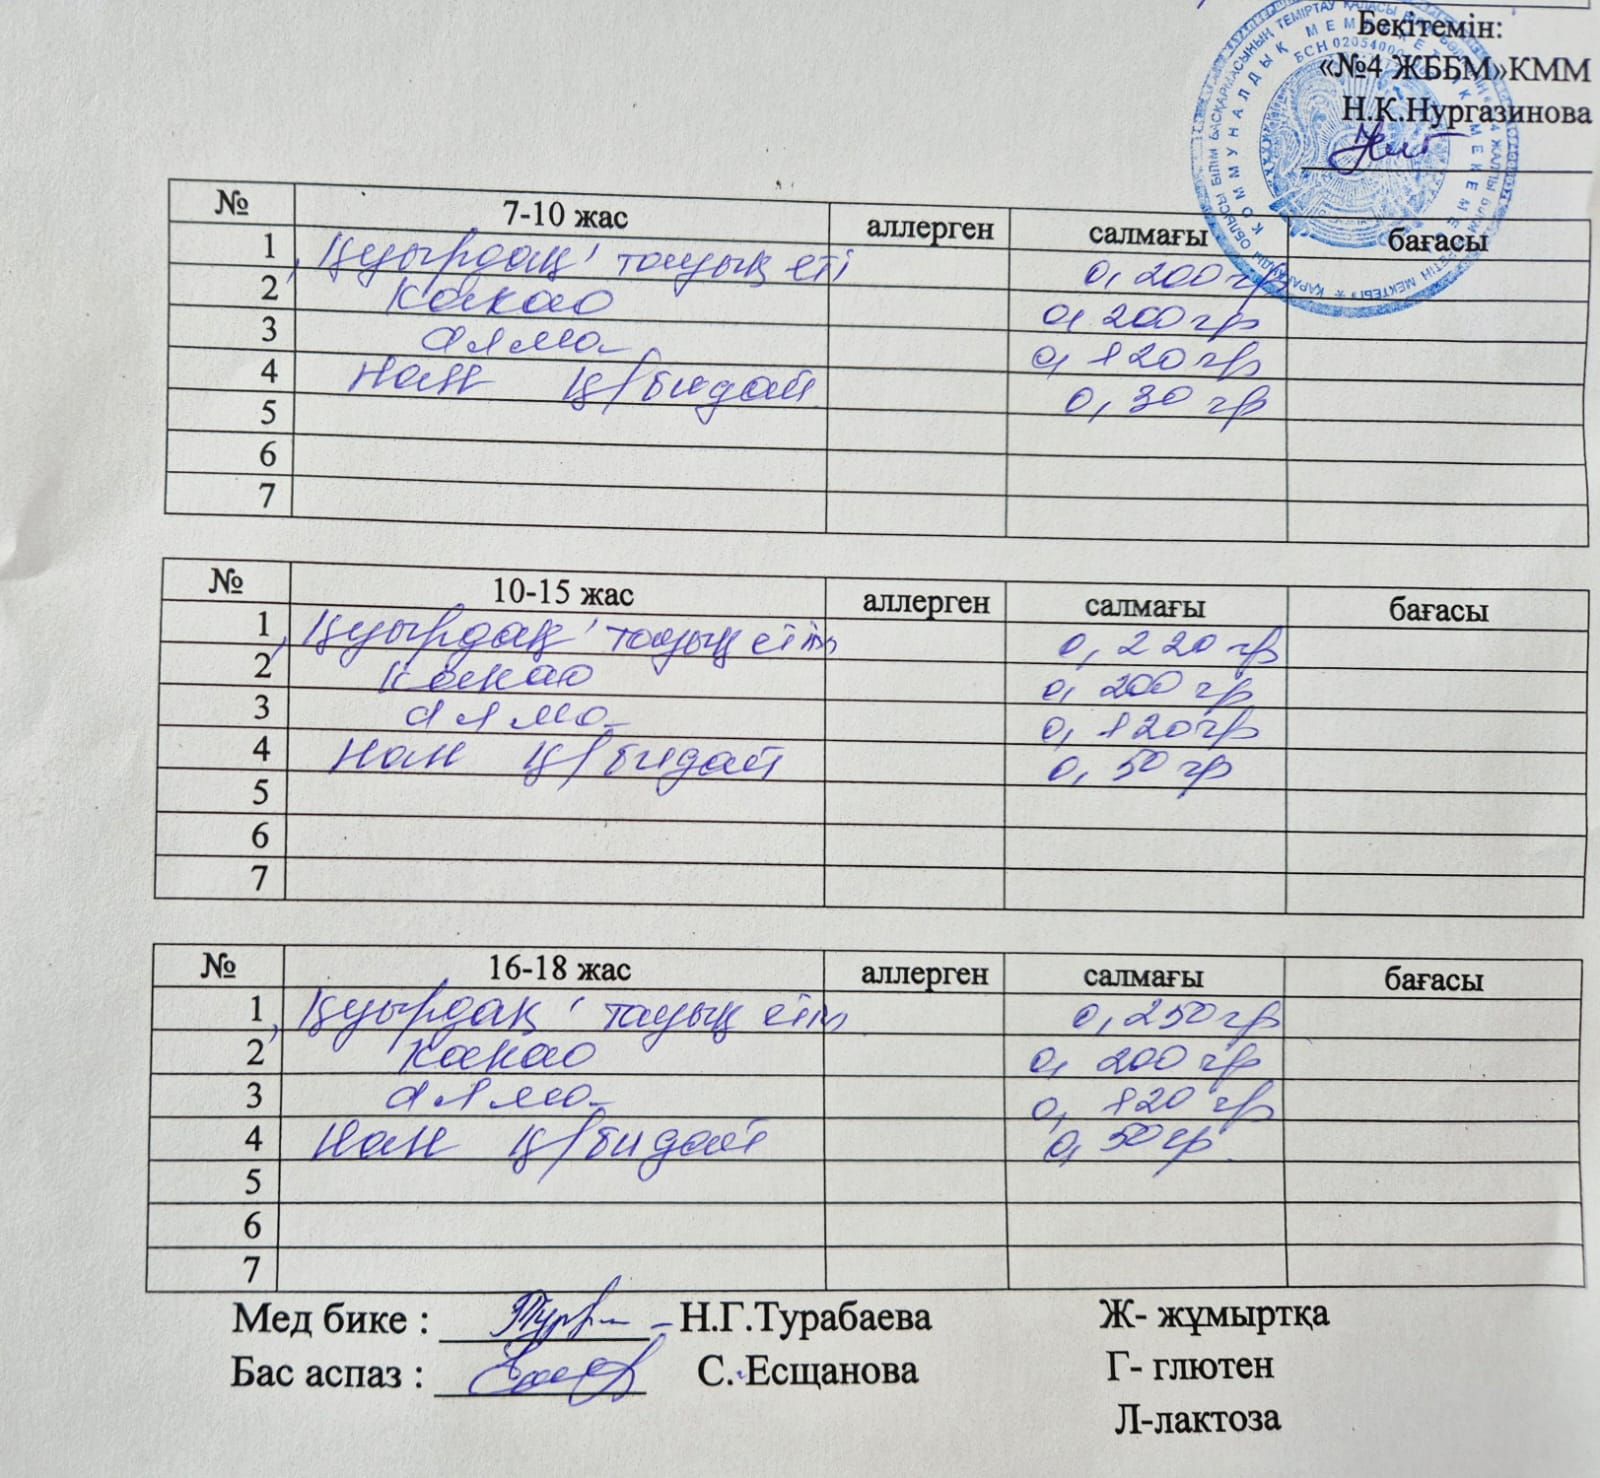 Бекітемін:
«№4 ЖББМ»КММ
Н.К.Нургазинова
№ 7-10 жас аллерген салмағы бағасы
1 Қуырдақ тауық еті 0,200 гр
2 Какао 0,200 гр
3 алма 0,120 гр
4 Нан қ/бидай 0,30 гр
5
6
7
№ 10-15 жас аллерген салмағы бағасы
1 Қуырдақ тауық еті 0,220 гр
2 Какао 0,200 гр
3 алма 0,120 гр
4 Нан қ/бидай 0,50 гр
5
6
7
№ 16-18 жас аллерген салмағы бағасы
1 Қуырдақ тауық еті 0,250 гр
2 Какао 0,200 гр
3 алма 0,120 гр
4 Нан қ/бидай 0,50 гр
5
6
7
Мед бике : Н.Г.Турабаева Ж- жұмыртқа
Бас аспаз : С. Есщанова Г- глютен
Л-лактоза